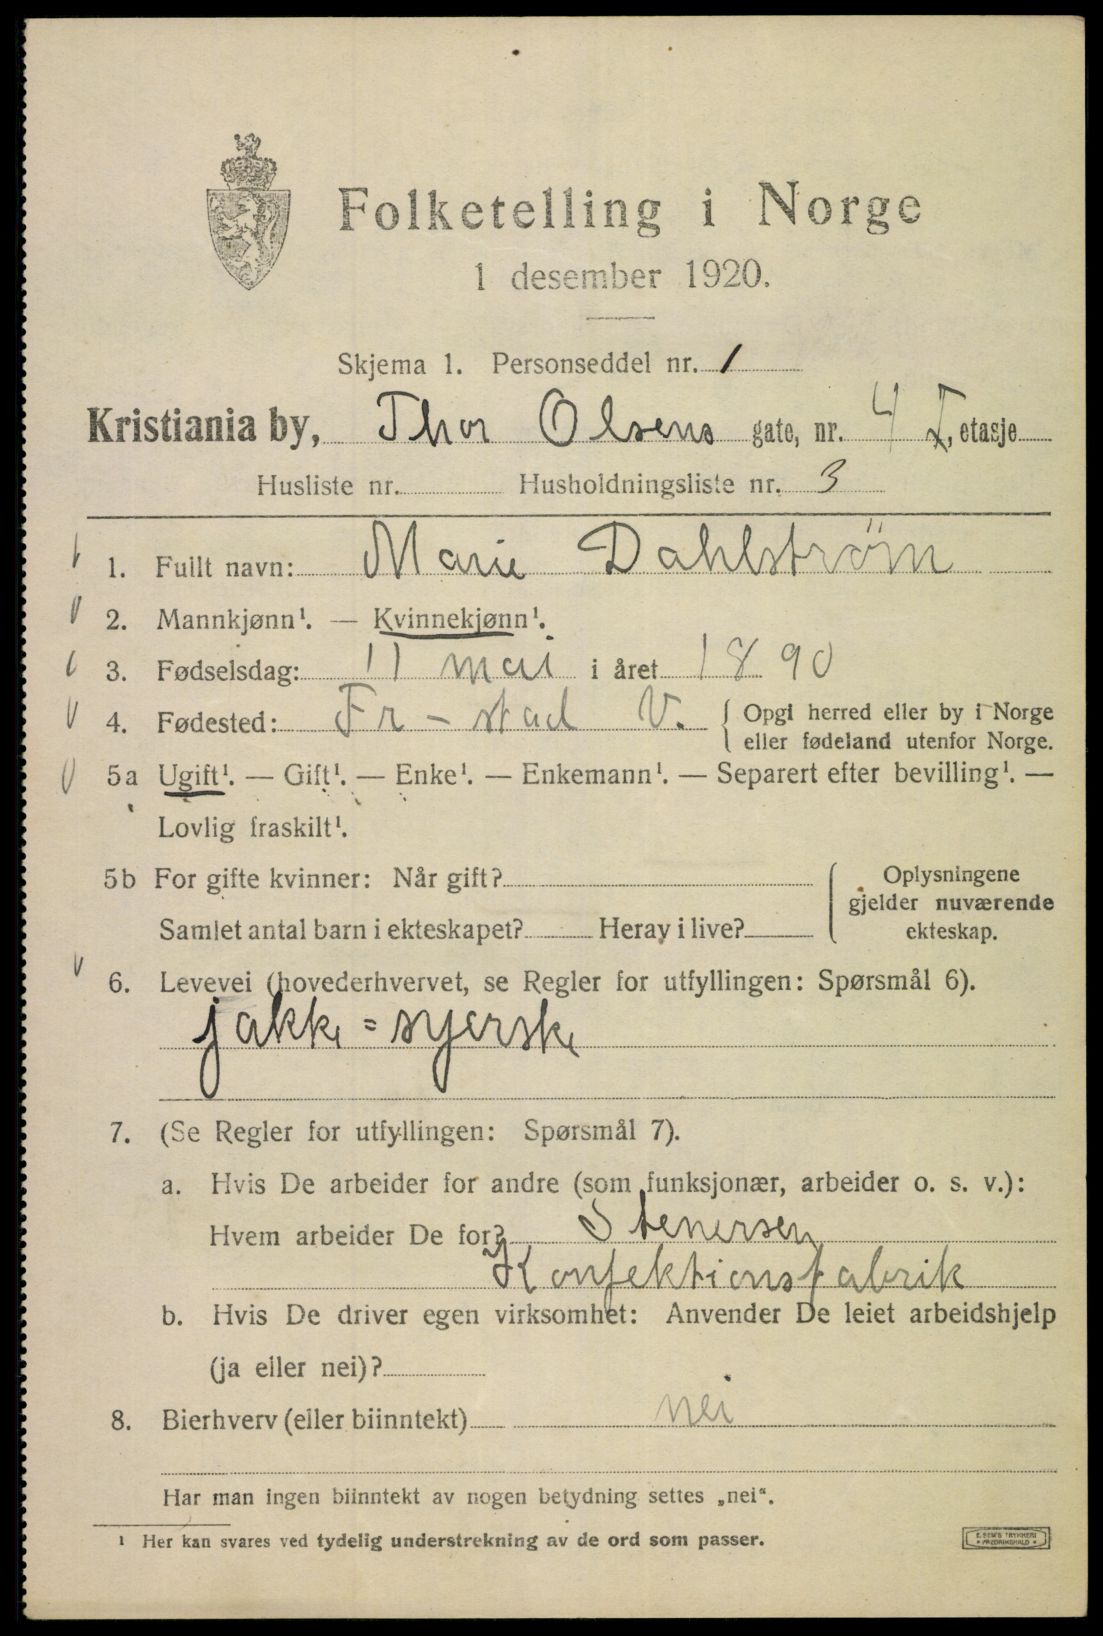 Folketelling i Norge
1 desember 1920.
Skjema 1. Personseddel nr. 1
Kristiania by, Thor Olsens gate, nr. 4 I, etasje
Husliste nr. Husholdningsliste nr. 3
1. Fullt navn: Marie Dahlstrøm
2. Mannkjønn¹. — Kvinnekjønn¹.
3. Fødselsdag: 11 mai i året 1890
4. Fødested: Fr-stad V. { Opgi herred eller by i Norge
eller fødeland utenfor Norge.
5a Ugift¹. — Gift¹. — Enke¹. — Enkemann¹. — Separert efter bevilling¹. —
Lovlig fraskilt¹.
5b For gifte kvinner: Når gift?
Samlet antal barn i ekteskapet? Herav i live?
Oplysningene
gjelder nuværende
ekteskap.
6. Levevei (hovederhvervet, se Regler for utfyllingen: Spørsmål 6).
jakke=syerske
7. (Se Regler for utfyllingen: Spørsmål 7).
a. Hvis De arbeider for andre (som funksjonær, arbeider o. s. v.):
Hvem arbeider De for? Stenersen
Konfektionsfabrik
b. Hvis De driver egen virksomhet: Anvender De leiet arbeidshjelp
(ja eller nei)?
8. Bierhverv (eller biinntekt) nei
Har man ingen biinntekt av nogen betydning settes „nei“.
¹ Her kan svares ved tydelig understrekning av de ord som passer.
E. SEM'S TRYKKERI
FREDRIKSHALD